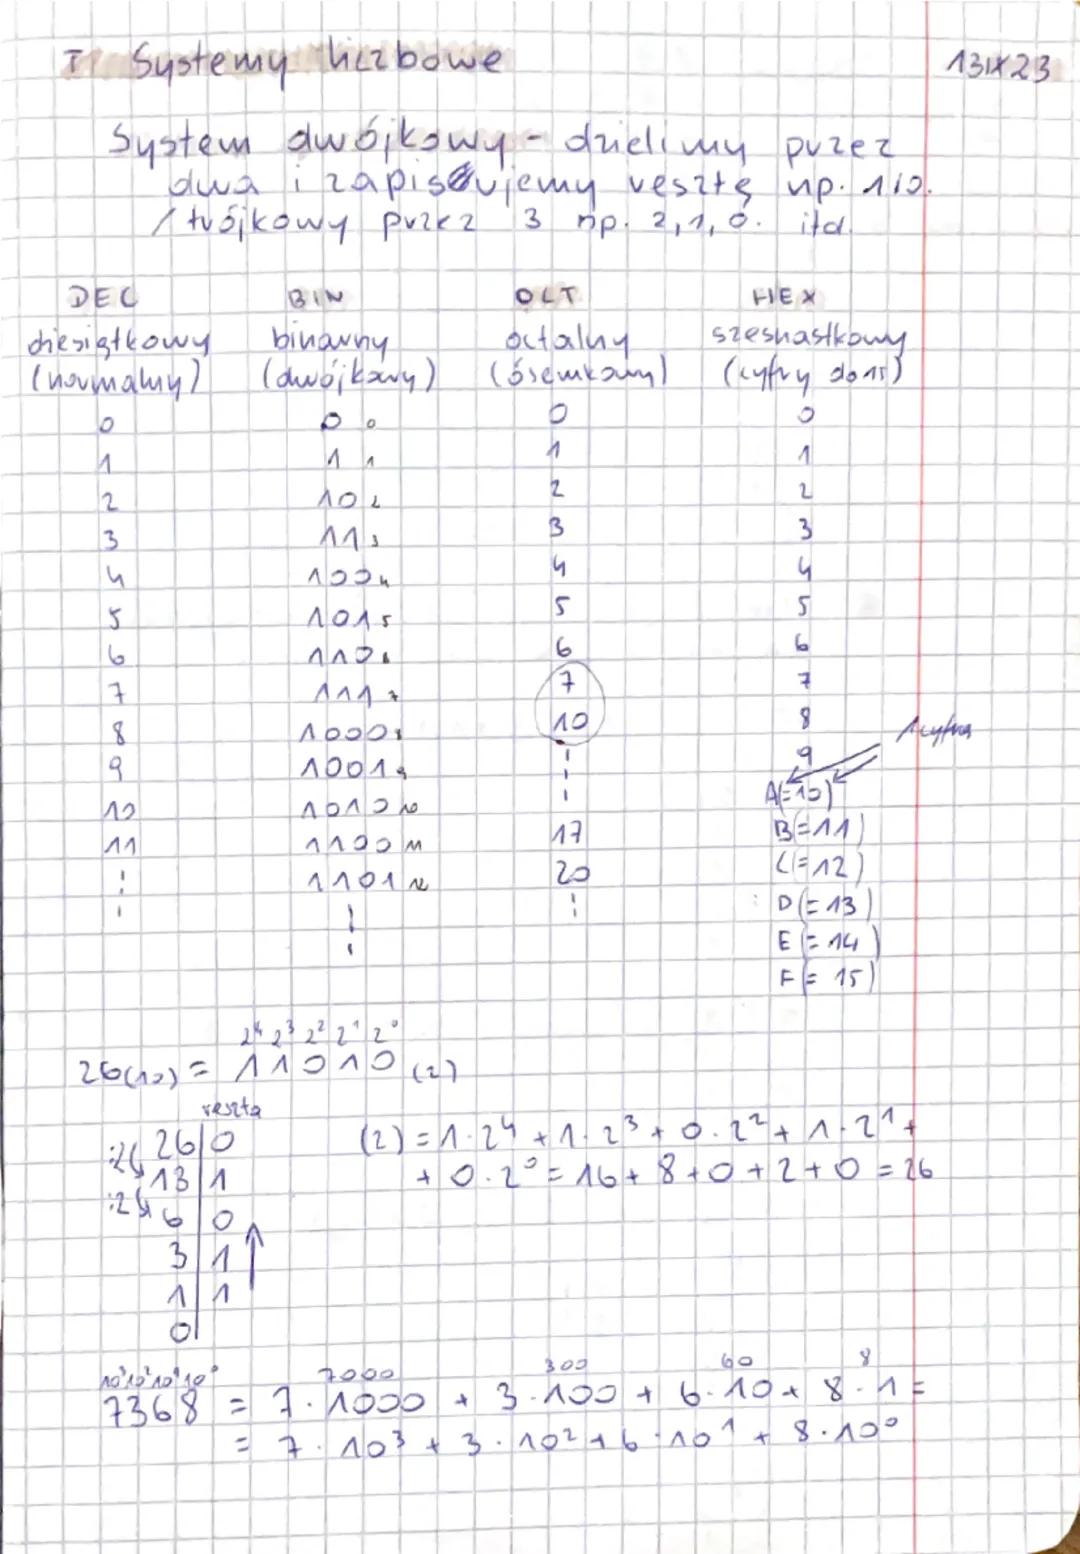 I Systemy liczbowe 13IX23
System dwójkowy - dzielimy przez
dwa i zapisujemy resztę np. 1 i 0.
/ trójkowy przez 3 np. 2,1,0. itd.
DEC BIN OCT HEX
dziesiątkowy binarny octalny szesnastkowy
(normalny) (dwójkowy) (ósemkowy) (cyfry do 15)
0 0 0 0 0
1 1 1 1 1
2 10 2 2 2
3 11 3 3 3
4 100 4 4 4
5 101 5 5 5
6 110 6 6 6
7 111 7 7 7
8 1000 8 10 8 1 cyfra
9 1001 9 9
10 1010 10 A(=10)
11 1100 11 17 B(=11)
1101 12 20 C(=12)
D(=13)
E(=14)
F(=15)
2⁴ 2³ 2² 2¹ 2⁰
26(10) = 11010 (2)
reszta
:2 26|0 (2) = 1·2⁴ + 1·2³ + 0·2² + 1·2¹ +
:2 13|1 + 0·2⁰ = 16 + 8 + 0 + 2 + 0 = 26
6|0
3|1
1|1
0|
10³ 10² 10¹ 10⁰ 7000 300 60 8
7368 = 7·1000 + 3·100 + 6·10 + 8·1 =
= 7·10³ + 3·10² + 6·10¹ + 8·10⁰